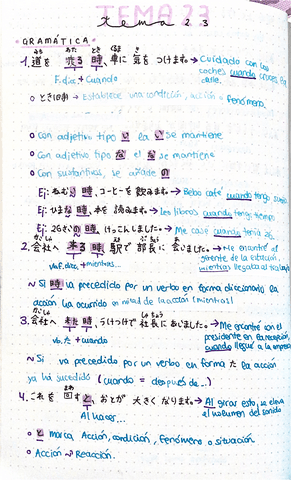 TEMA 23
tema 23
GRAMÁTICA
1. 道を 渡る 時、車に 気を つけます。→ Cuidado con los
coches cuando cruces la
calle.
F. dic + Cuando
とき/時 → Establece una condición, acción o fenómeno.
Con adjetivo tipo い la い se mantiene
Con adjetivo tipo な el な se mantiene
Con sustantivos, se añade の
Ej: ねむい 時、コーヒーを 飲みます。→ Bebo café cuando tengo sueño
Ej: ひまな 時、本を 読みます。→ Leo libros cuando tengo tiempo
Ej: 26さいの 時、けっこんしました。→ Me casé cuando tenía 26
2. 会社へ 来る 時、駅で 部長に 会いました。→ Me encontré al
gerente de la estación
mientras llegaba al trabajo
vb f. dic + mientras...
~ Si 時 va precedido por un verbo en forma diccionario la
acción ha ocurrido en mitad de la acción (mientras)
3. 会社へ 来た 時、うけつけで 社長に あいました。→ Me encontré con el
presidente en la recepción,
cuando llegué a la empresa
vb. た + cuando
~ Si va precedido por un verbo en forma た la acción
ya ha sucedido (cuando = después de...)
4. これを 回すと、おとが 大きく なります。→ Al girar esto, se eleva
el volumen del sonido
Al hacer...
と marca Acción, condición, fenómeno o situación
Acción → Reacción.